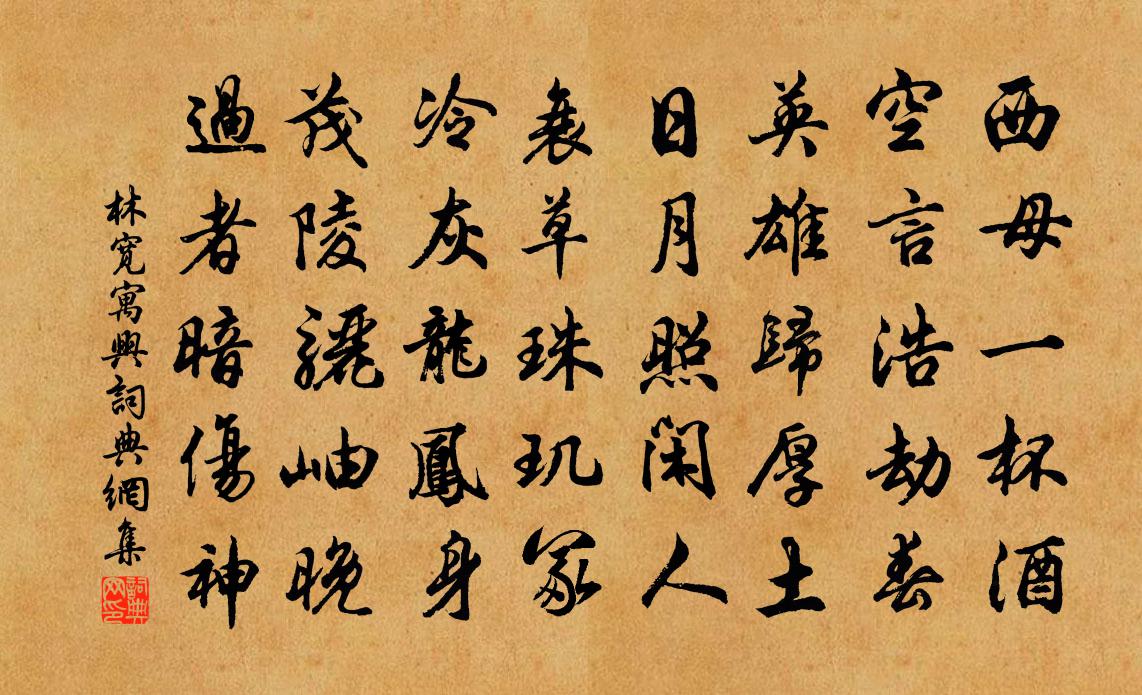 西母一杯酒
空言浩劫春
英雄歸厚土
日月照閑人
衰草珠玑冢
冷灰龍鳳身
茂陵驪岫晚
過者暗傷神
林寬寓興詞典網集
詞典网印